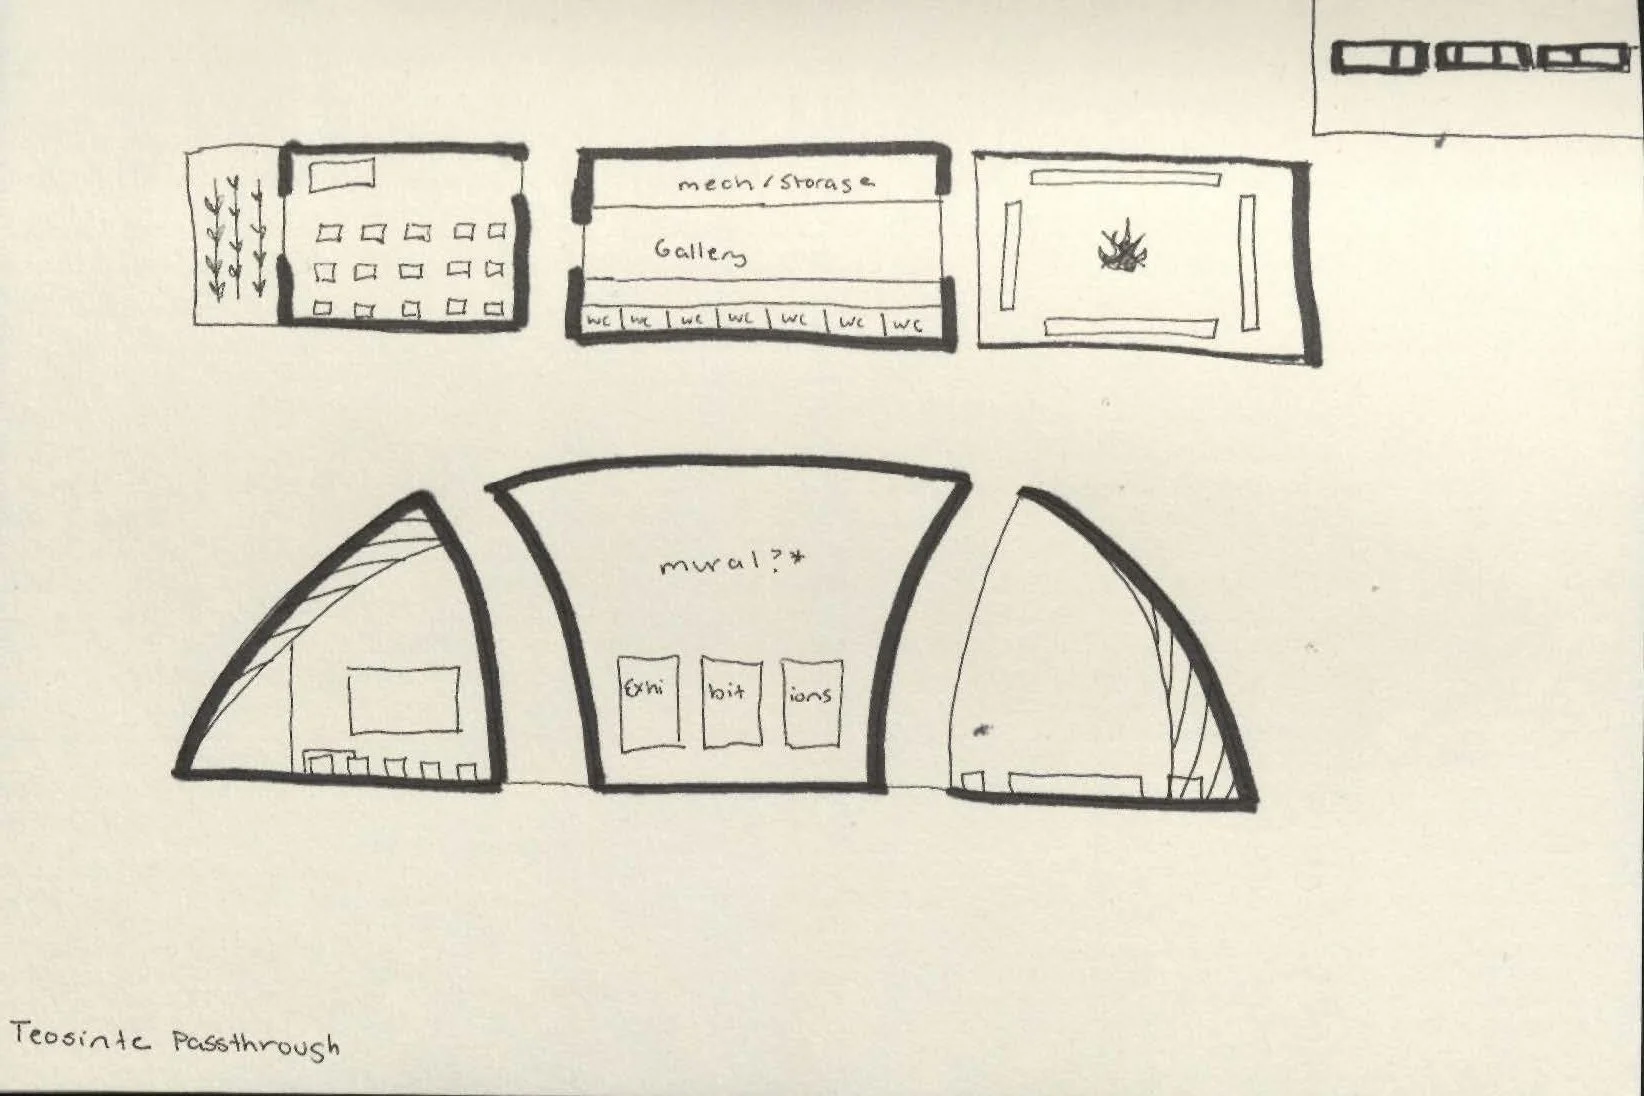 mech/Storage
Gallery
WC WC WC WC WC WC WC
mural?*
Exhi bit ions
*
Teosinte Passthrough